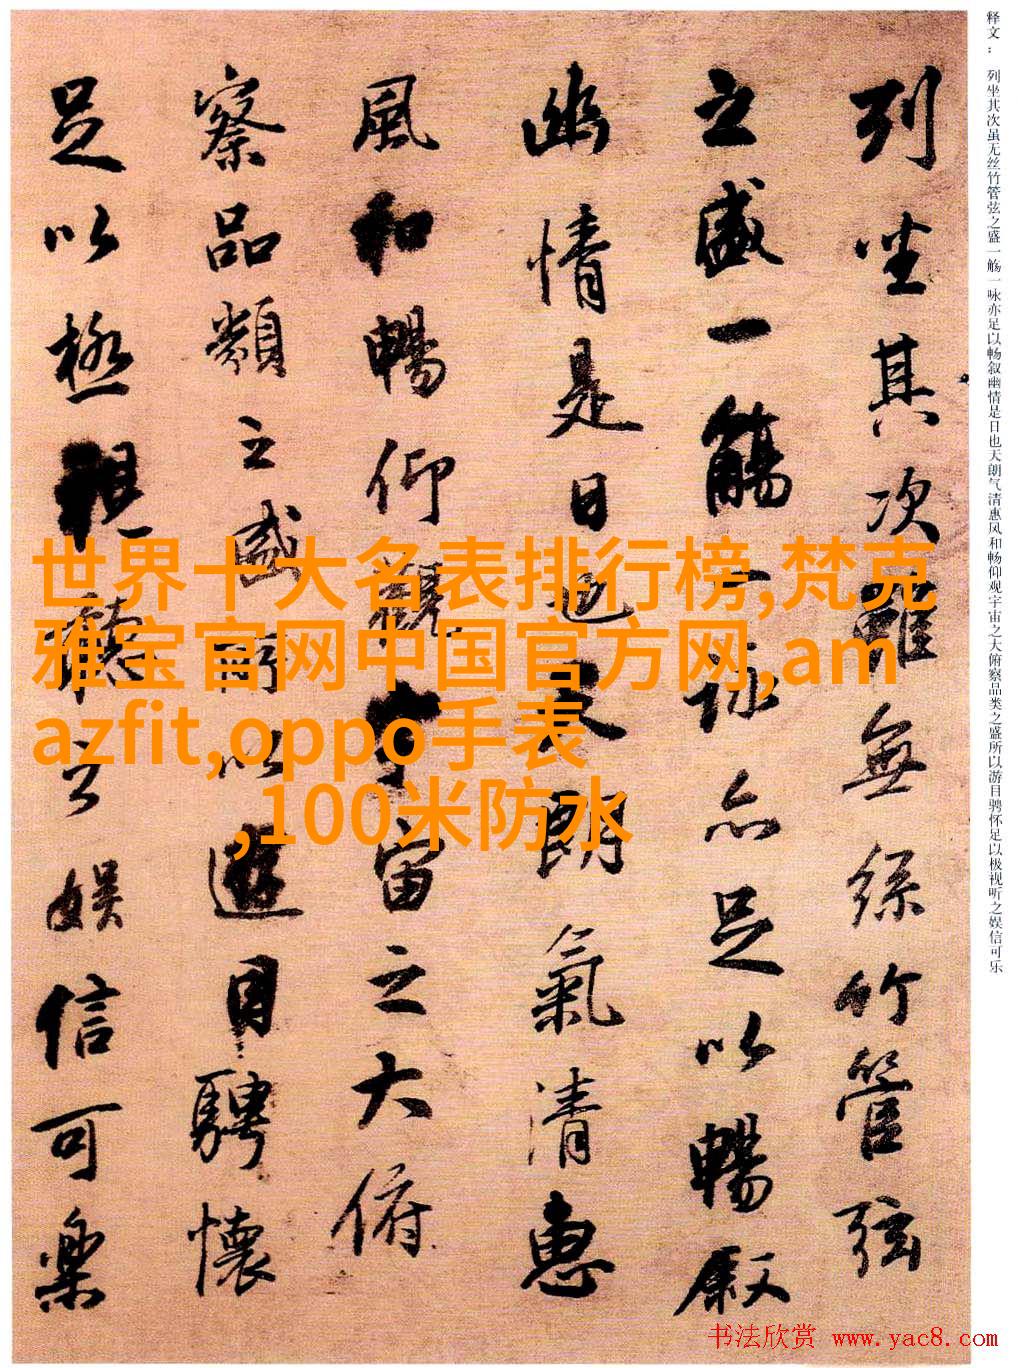 释文： 列坐其次虽无丝竹管弦之盛一觞一咏亦足以畅叙幽情是日也天朗气清惠风和畅仰观宇宙之大俯察品类之盛所以游目骋怀足以极视听之娱信可乐
列坐其次雖無絲竹管弦
之盛一觴一詠亦足以暢敘
幽情是日也天朗氣清惠
風和暢仰觀宇宙之大俯
察品類之盛所以遊目騁懷
足以極視聽之娛信可樂
世界十大名表排行榜,梵克
雅宝官网中国官方网,am
azfit,oppo手表
,100米防水
书法欣赏 www.yac8.com